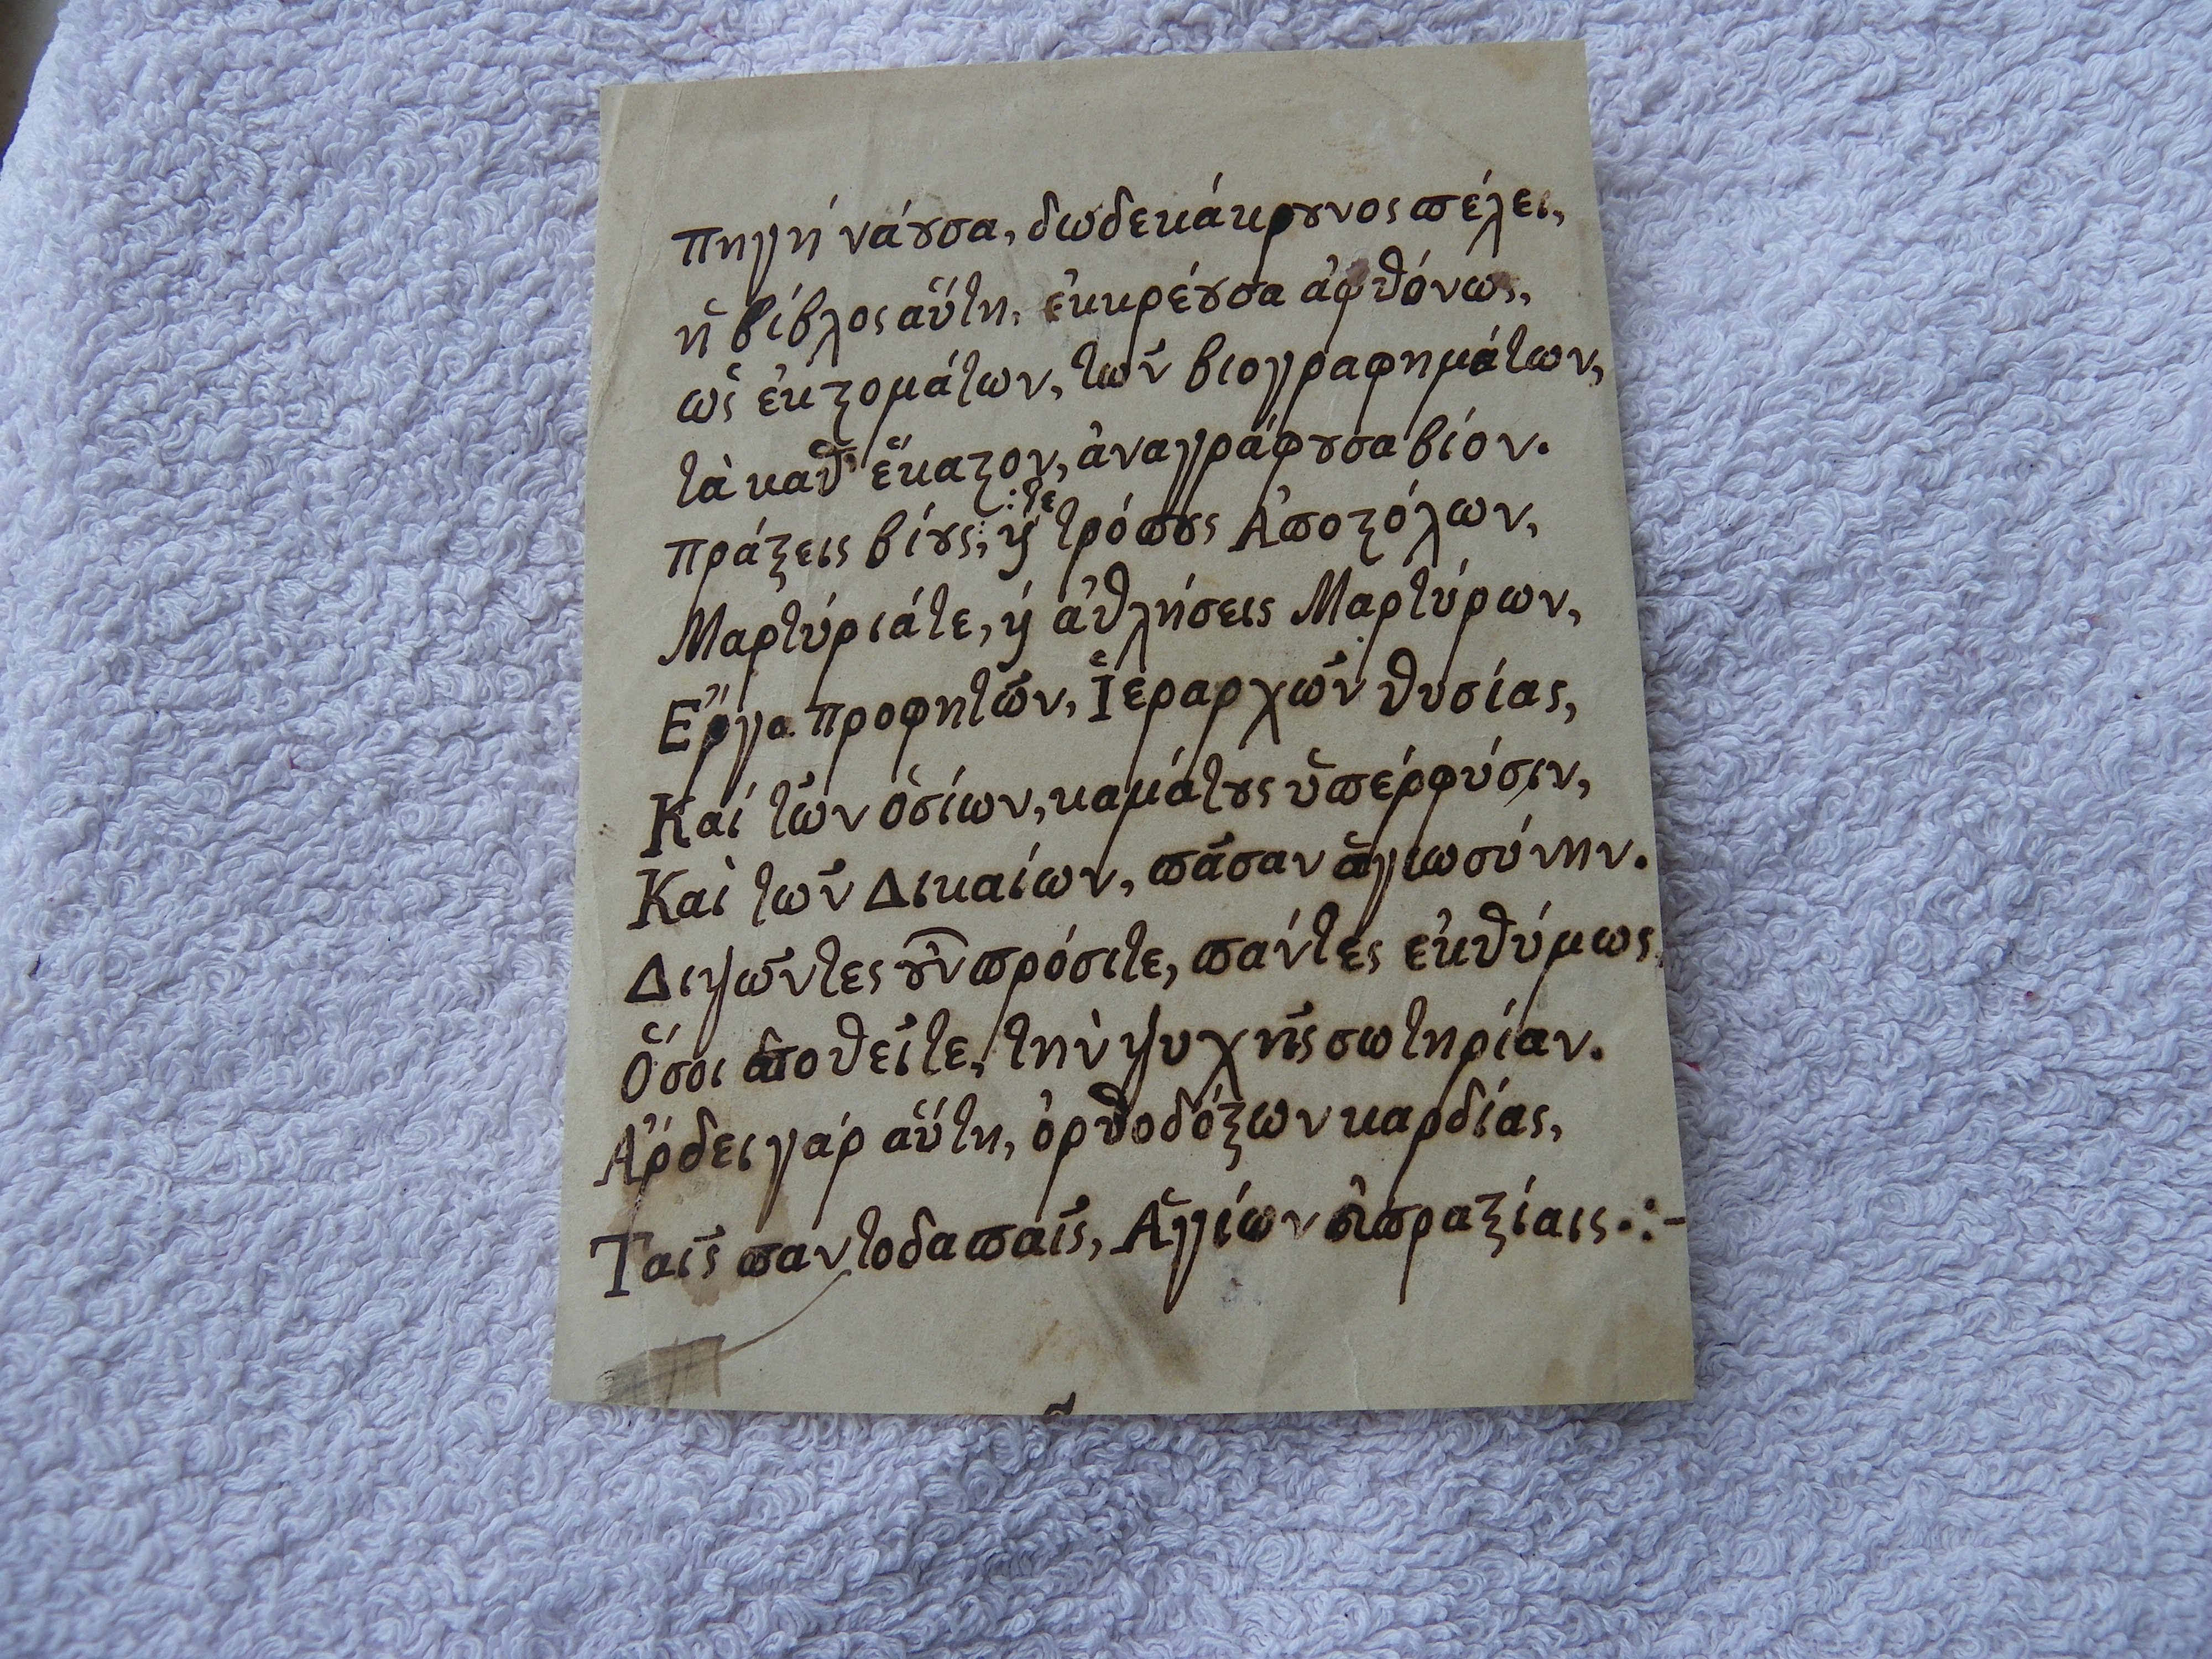 πηγή νάȣσα, δωδεκάκρȣνος ϖέλει,
ἡ βίβλος αὕτη, ἐκκρέȣσα ἀφθόνως,
ὡς ἐκ ϛομάτων, τῶν βιογραφημάτων,
τὰ καθ' ἕκαϛον, ἀναγράφȣσα βίον.
πράξεις βίȣς, :τε ϗ τρόϖȣς Ἀϖοϛόλων,
Μαρτύριάτε, ϗ ἀθλήσεις Μαρτύρων,
Ἔργα προφητῶν, Ἱεραρχῶν θυσίας,
Καί τῶν ὁσίων, καμάτȣς ὑϖέρφύσιν,
Καὶ τῶν Δικαίων, ϖᾶσαν ἁγιωσύνην.
Διψῶντες ȣ̓͂ν ϖρόσιτε, ϖάντες ἐκθύμως,
Ὅσοι ϖοθεῖτε, τὴν ψυχῆς σωτηρίαν.
Ἄρδει γάρ αὕτη, ὀρθοδόξων καρδίας,
Ταῖς ϖαντοδαϖαῖς, Ἁγίων εὐϖραξίαις.:-